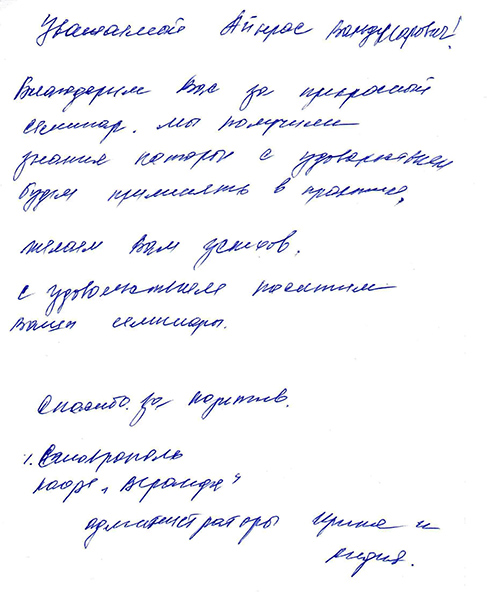 Уважаемый Айнрас Вандусарович!
Благодарим Вас за прекрасный
семинар. мы получили
знания которы с удовольствием
будем применять в практике,
желаем Вам успехов.
с удовольствием посетим
Ваши семинары.
Спасибо за позитив.
г. Ставрополь
кафе „Веранда“
администраторы Ирина и
Лидия.